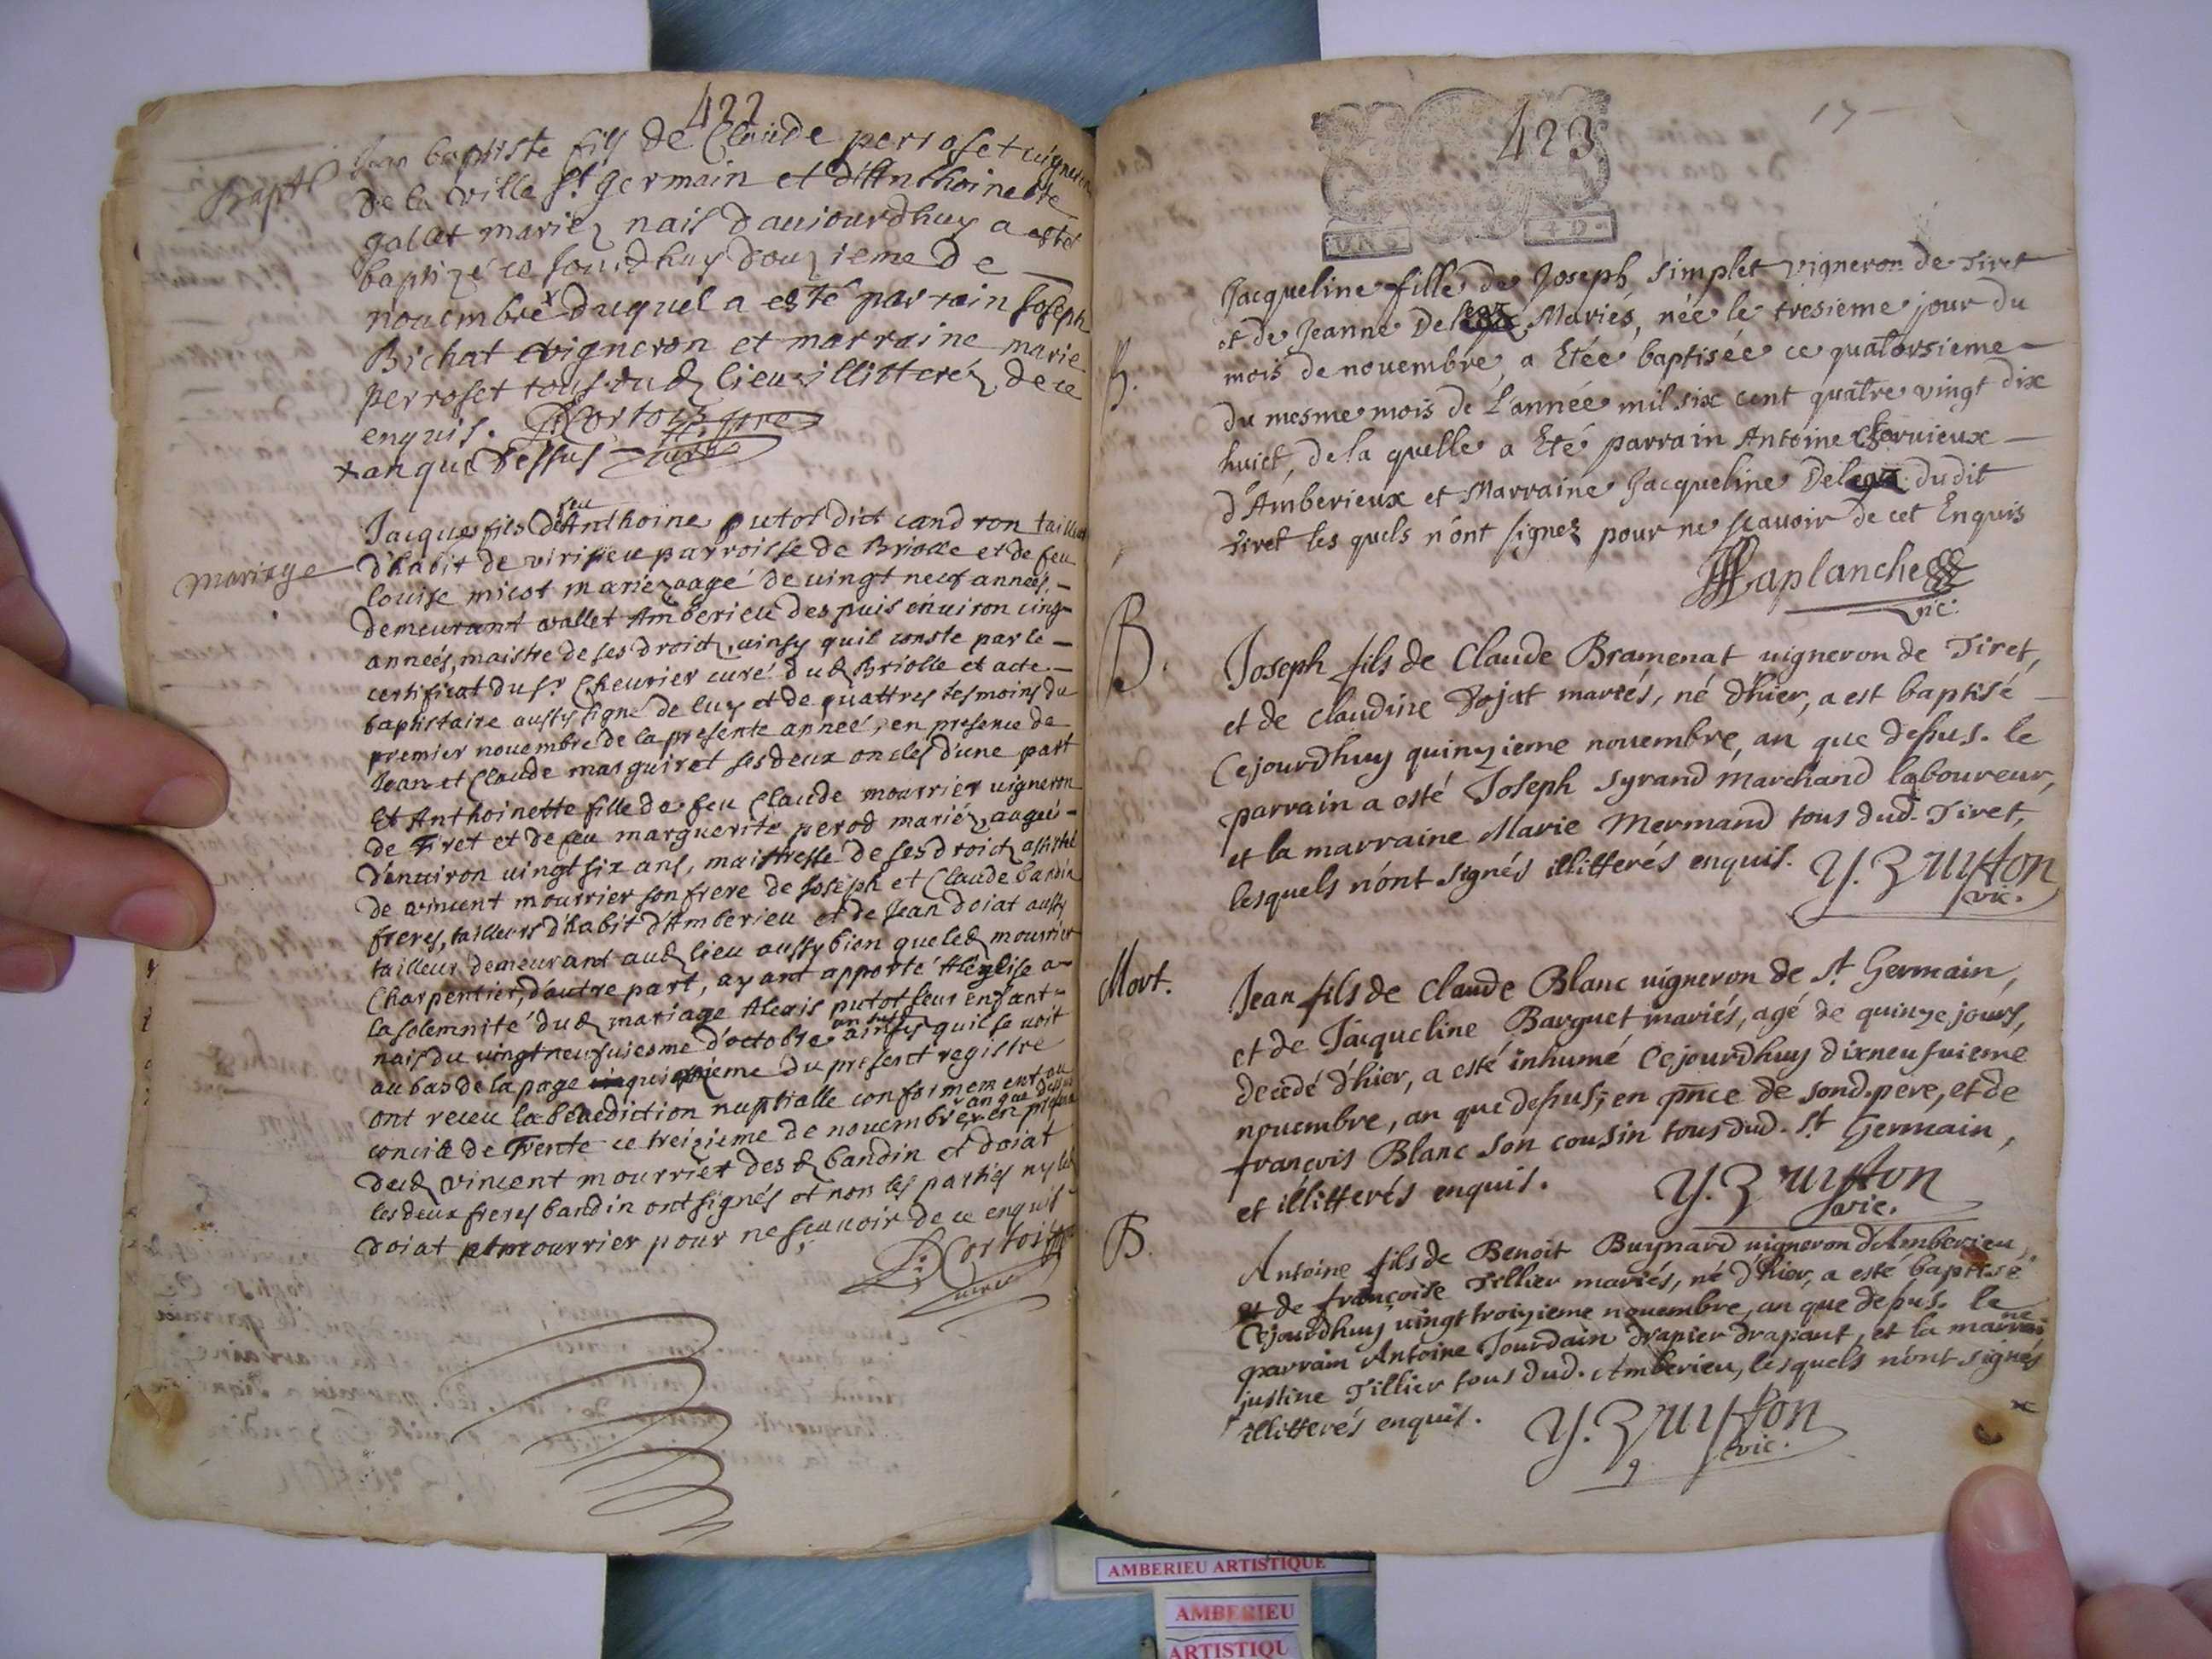 422
Bapt
Jean baptiste fils de Claude perroset vigneron
de la ville St germain et d'Anthoinette
gallet mariez nais d'aujourdhuy a esté
baptizé ce jourdhuy douzieme de
novembre x duquel a esté parrain Joseph
Bichat vigneron et marraine marie
perroset tous dud lieu illitterez de ce
enquis. Cortois ptre
x an que dessus curé
Mariage
Jacques fils de feu Anthoine putot dict candron tailleur
d'habit de virisieu parroisse de Briolle et de feu
louise micot mariez aagé de vingt neuf années,
demeurant vallet Amberieu despuis environ cinq
années, maistre de ses droictz, ainsy quil conste par le
certificat du sr Chevrier curé dud Briolle et acte
baptistaire aussy signé de luy et de quattres tesmoins du
premier novembre de la presente année, en presence de
Jean et Claude marguiret ses deux oncles d'une part
Et Anthoinette fille de feu Claude mourrier vigneron
de Tiret et de feu marguerite perod mariéz, aageé
d'environ vingt six ans, maistresse de ses droictz assistéé
de vincent mourrier son frere de Joseph et Claude bandin
freres, tailleurs d'habit d'Amberieu et de Jean doiat aussy
tailleur demeurant aud lieu aussy bien que led mourrier
Charpentier, d'autre part, ayant apporté A l'eglise a
la solemnité dud mariage Alexis putot leur enfant
nais du vingt neufviesme d'octobre an susd ainsy quil se voit
au bas de la page quinzieme du present registre
ont receu la benediction nuptialle conformement au
concile de Trente ce treizieme de novembre an que dessus en presence
dud vincent mourrier desd bandin et doiat
les deux freres bandin ont signés et non les parties ny led
doiat et mourrier pour ne sçauoir de ce enquis
Cortois ptre
curé
423
17
UNS 4D.
B.
Jacqueline fille de Joseph Simplet vigneron de Tiret
et de Jeanne Mariés, née le tresieme jour du
mois de novembre, a Etée baptisée ce quatorsieme
du mesme mois de l'année mil six cent quatre vingt dix
huict, de la quelle a Eté parrain Antoine Chervieux
d'Amberieux et Marraine Jacqueline dudit
Tiret les quels n'ont signez pour ne sçavoir de cet Enquis
Laplanche
vic.
B.
Joseph fils de Claude Bramenat vigneron de Tiret,
et de Claudine Dojat mariés, né d'hier, a est baptisé
Cejourdhuy quinzieme novembre, an que dessus. le
parrain a esté Joseph Syrand marchand laboureur,
et la marraine Marie Mermand tous dud. Tiret,
lesquels n'ont signés illitterés enquis. Y. Bruysson
vic.
Mort.
Jean fils de Claude Blanc vigneron de St Germain,
et de Jacqueline Barguet mariés, agé de quinze jours,
decedé d'hier, a esté inhumé Cejourdhuy dixneufvieme
novembre, an que dessus, en pnce de sond. pere, et de
françois Blanc son cousin tous dud. St Germain,
et illitterés enquis. Y. Bruysson
vic.
B.
Antoine fils de Benoit Buynard vigneron d'Amberieu,
et de françoise Tillier mariés, né d'hier, a esté baptisé
Cejourdhuy vingt troizieme novembre, an que dessus. le
parrain Antoine Jourdain drapier drapant, et la marraine
justine Tillier tous dud. Amberieu, lesquels n'ont signés
illitterés enquis. Y. Bruysson
vic.
AMBERIEU ARTISTIQUE
AMBERIEU
ARTISTIQU